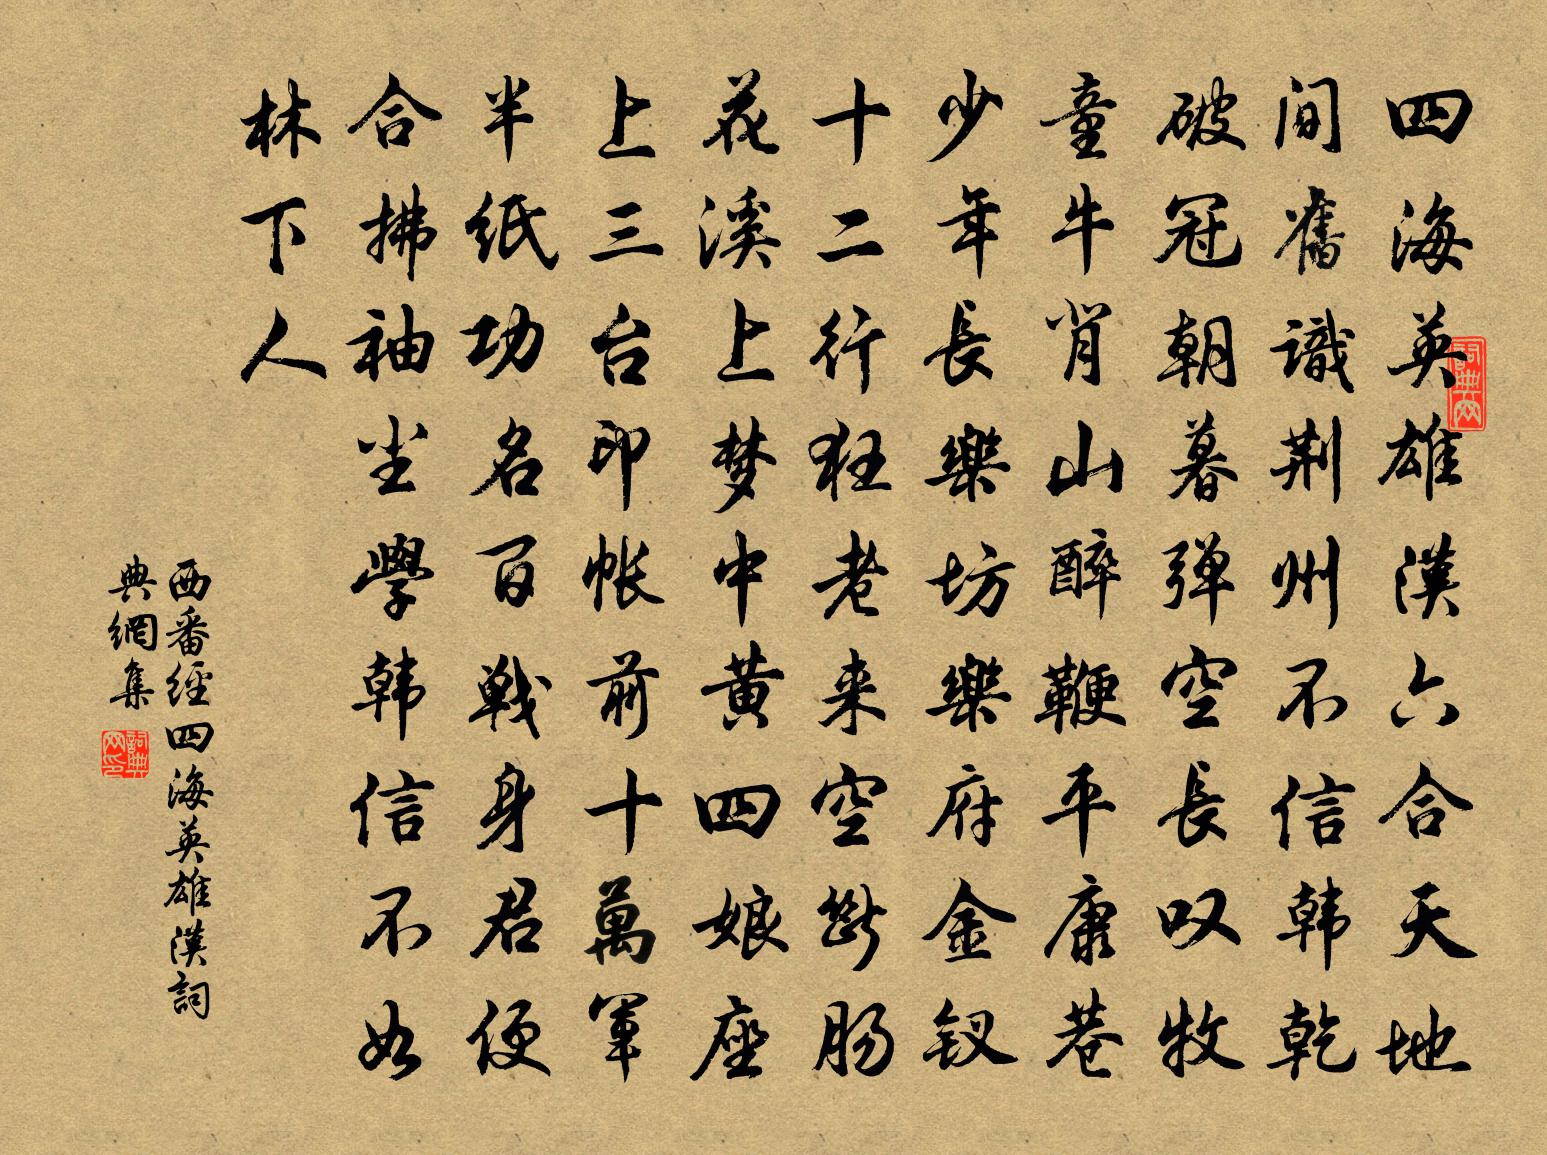 四海英雄漢六合天地
间舊識荆州不信韩乾
破冠朝暮弹空長叹牧
童牛背山醉鞭平康巷
少年長樂坊樂府金钗
十二行狂老来空斷肠
花溪上梦中黄四娘座
上三台印帐前十萬军
半纸功名百戦身君便
合拂袖尘學韩信不如
林下人
西番經四海英雄漢詞
典網集
詞典网
詞典网印